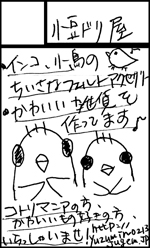 小豆ドリ屋
・インコ、小鳥の
ちいさなフェルトアクセサリト
・かわいい雑貨を
作ってます♪
コトリマニアの方
かわいいものずきの方
いらっしゃいませ!